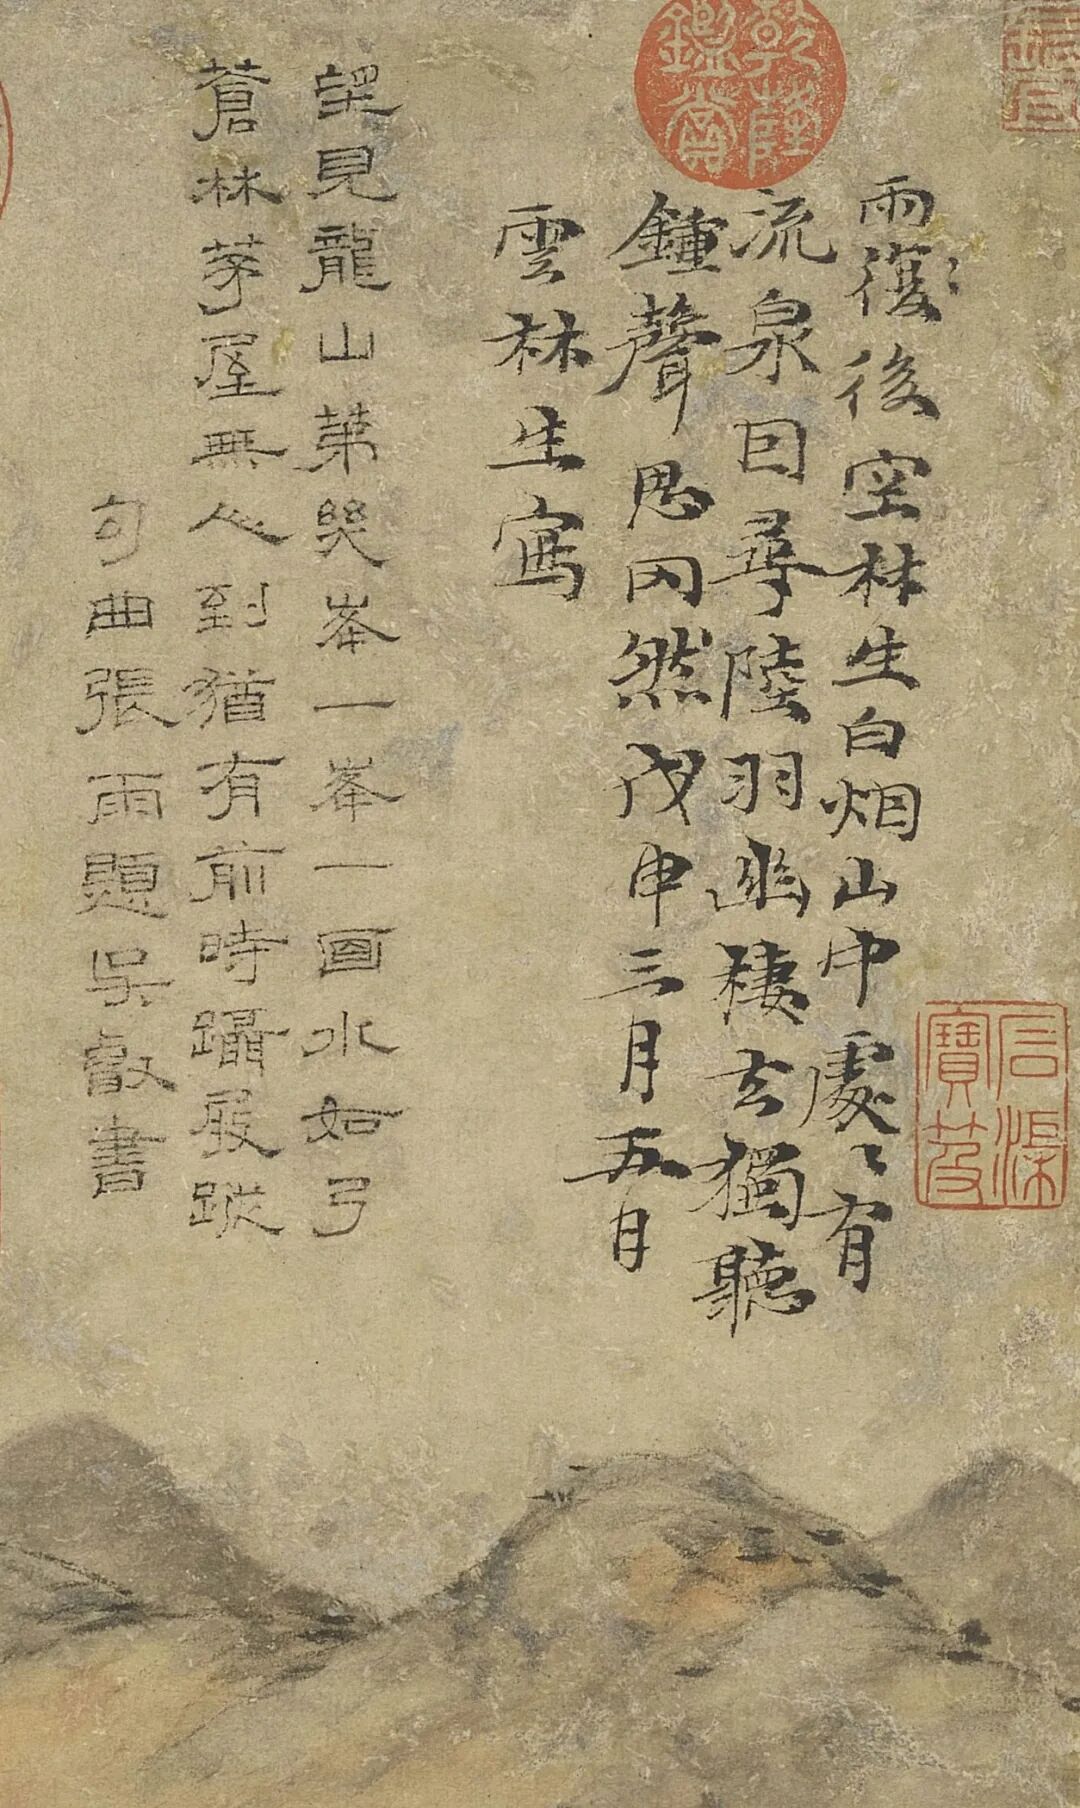 乾隆鑑賞
雨復後空林生白烟山中處〻有
流泉因尋陸羽幽棲去獨聽
鍾聲思罔然戊申三月五日
雲林生寫
望見龍山第幾峯一峯一面水如弓
蒼林茅屋無人到猶有前時躡屐蹤
句曲張雨題吳叡書
石渠寶笈